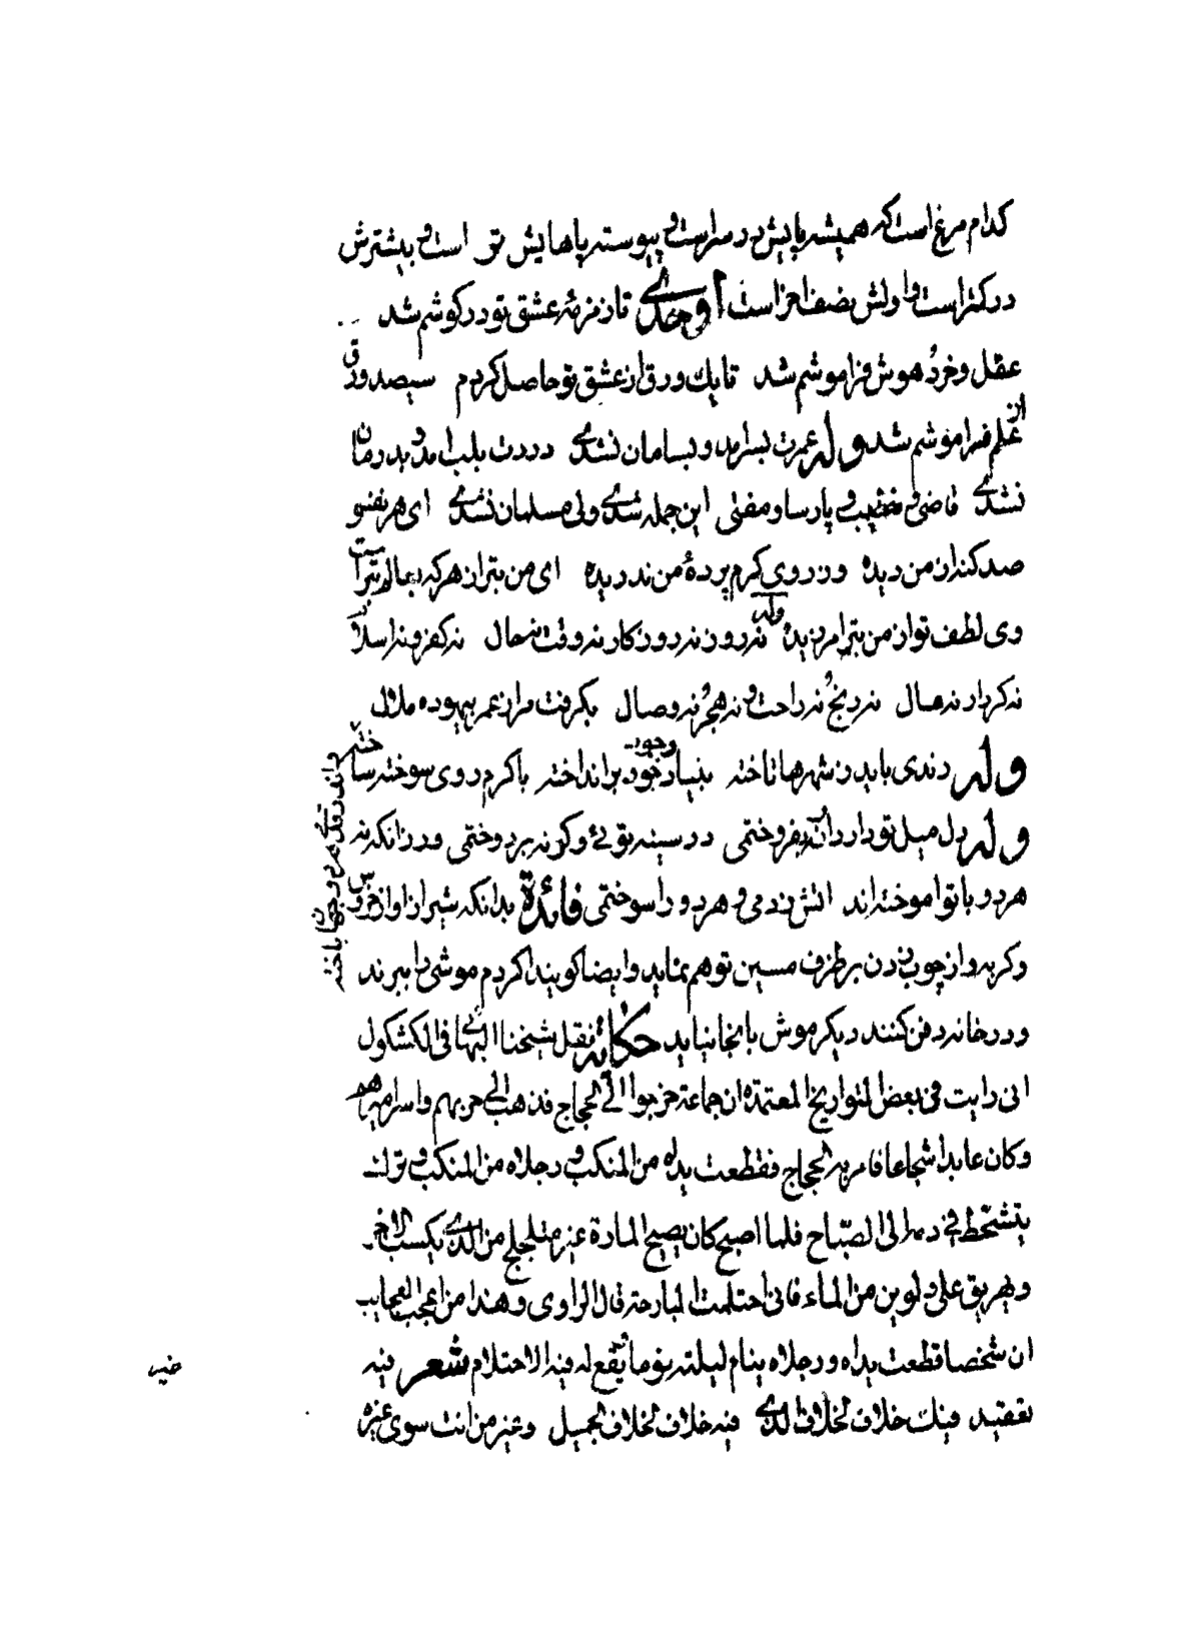 کدام مرغ است که همیشه پایش در سر است و پیوسته پاهایش تو است و بیشترش
در کثر است و اولش نصف اخر است اوحدی تا زمزمهٔ عشق تو در کوشم شد
عقل و خرد و هوش فراموشم شد تا یك ورق از عشق تو حاصل کردم سیصد ورق
از علم فراموشم شد وله عمرت بسر امد و بسامان نشدی دردت بلب امد و بدرمان
نشدی قاضی و محتسب و پارسا و مفتی این جمله شدی ولی مسلمان نشدی ای هر نفسی
صد کنه از من دیده وز روی کرم پردهٔ من ندریده ای من بتر از هر که بعالم بتر است
وی لطف تو از من بتر امرزیده وله نه روز نه روزکار نه وقت نه حال نه کفر و نه اسلام
نه کردار نه مال نه رنج و نه راحت و نه هجر و نه وصال بکرفت مرا ز عمر بیهوده ملال
وله رندی باید ز شهرها تاخته بنیاد وجود خود برانداخته با کرم روی سوخته ساخته
واندر قدمی هر دو جهان باخته
وله دل میل تو دارد ار نه بفروختمی در سینه توئی وکر نه بردوختمی ور زانکه نه
هر دو با تو اموخته اند اتش زدمی و هر دو را سوختمی فائدة بدانکه شیر از اواز خروس
و کربه و از چوب زدن بر ظرف مسین توهم نماید و ایضا کویند اکر دم موشی را ببرند
و در خانه دفن کنند دیکر موش بانجا نیاید حکایة نقل شیخنا البهائی فی الکشکول
انی رایت فی بعض التواریخ المعتمدة ان جماعة خرجوا الی الحجاج فذهب الی حربهم و اسر امیرهم
و کان عابدا شجاعا فامر به الحجاج فقطعت یداه من المنکب و رجلاه من المنکب و ترك
یتشحط فی دمه الی الصباح فلما اصبح کان یصیح المارة غیر متلجلج من الذی یکسب الاجر
و یهریق علی دلوین من الماء فانی احتلمت البارحة قال الراوی و هذا من اعجب العجایب
ان شخصا قطعت یداه و رجلاه ینام لیلته نوما یقع له فیه الاحتلام شعر فیه
تعقید فیك خلاف لخلاف الذی فیه خلاف لخلاف الجمیل و غیر من انت سوی غیره